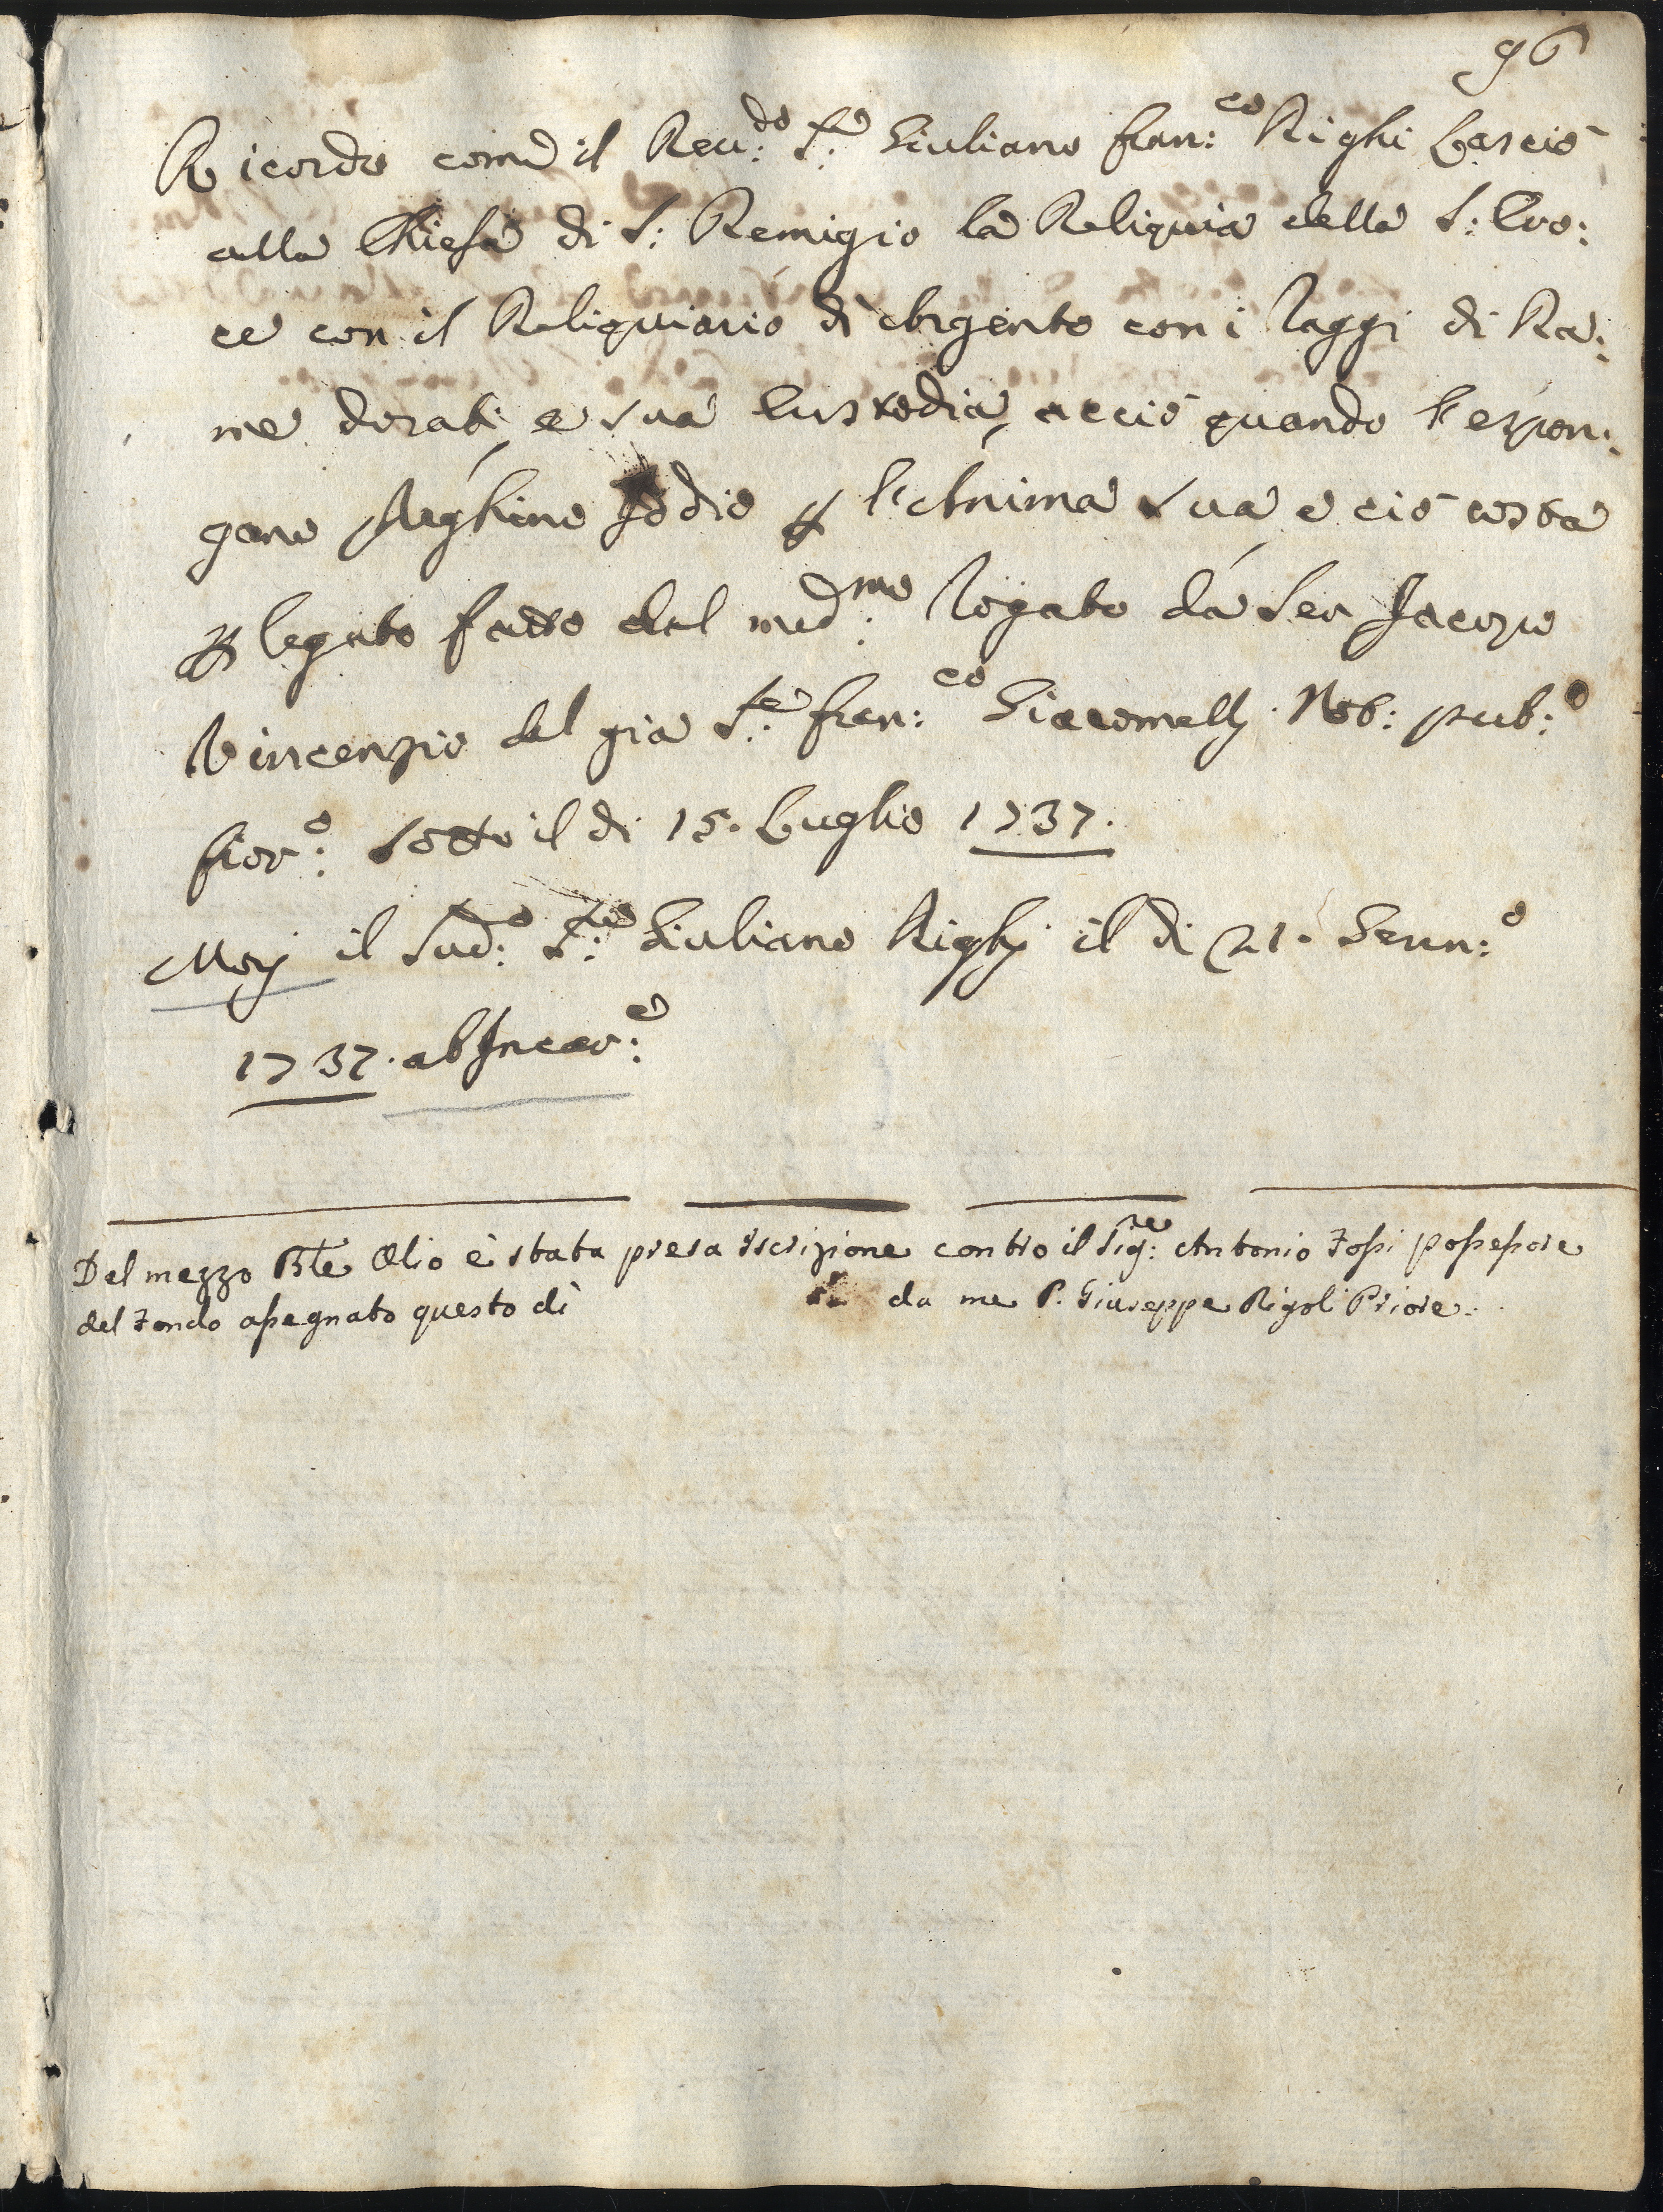 96
Ricordo come il Reu:do S:re Giuliano fran:co Righi Lasciò
alla Chiesa di S: Remigio la Reliquia della S: Cro:
ce con il Reliquiario di Argento con i Raggi di Ra:
me dorati, e sua Custodia, acciò quando l'espon:
gano preghino Iddio per l'Anima sua e ciò costa
per legato fatto dal med:mo Rogato da Ser Jacopo
Vincenzio del già S:re fran:co Giacomelli Not: pub:o
fior:o sotto il di 15. Luglio 1737.
Morj il sud:o S:re Giuliano Righj il di 21. Genn:o
1737. ab Incar:e
Del mezzo Ble Olio è stata presa iscrizione contro il Sig:re Antonio Fossi possessore
del Fondo assegnato questo dì da me P. Giuseppe Rigoli Priore.